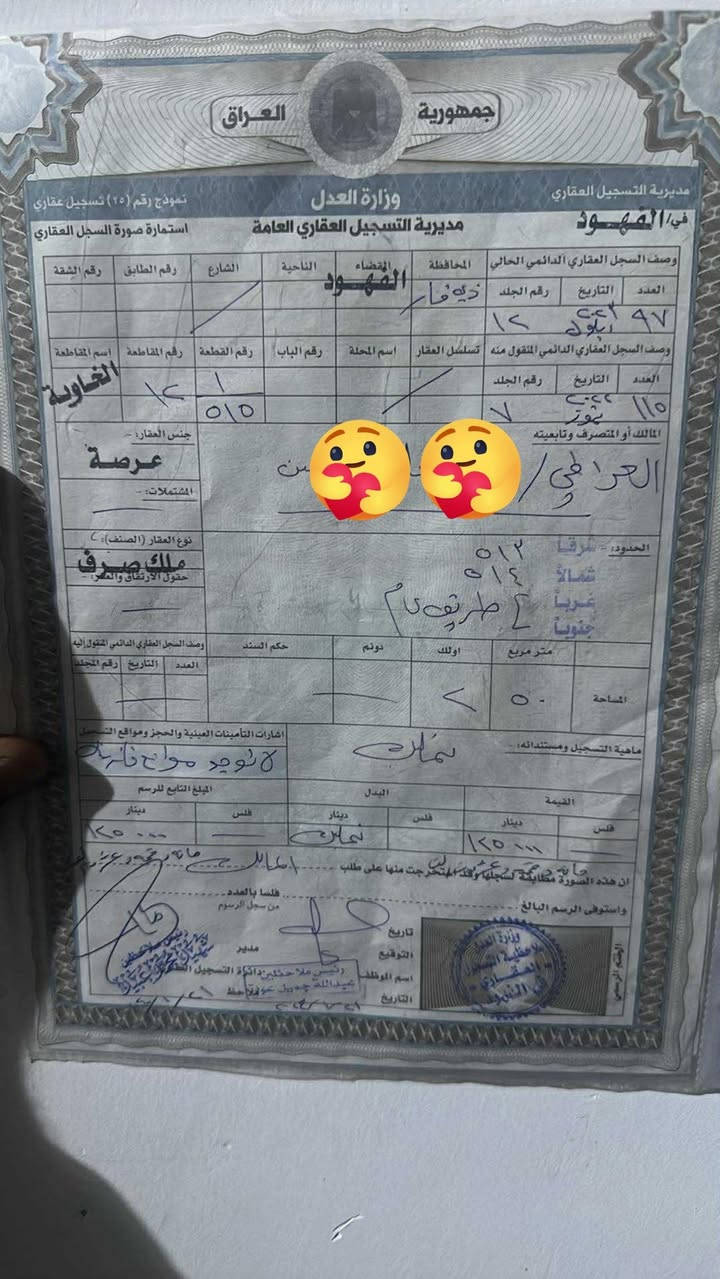 جمهورية العراق
مديرية التسجيل العقاري
وزارة العدل
نموذج رقم (٢٥) تسجيل عقاري
في/ الفهود
مديرية التسجيل العقاري العامة
استمارة صورة السجل العقاري
وصف السجل العقاري الدائمي الحالي المحافظة القضاء الناحية الشارع رقم الطابق رقم الشقة
العدد التاريخ رقم الجلد ذي قار الفهود
٩٧ ايلول ٢٠٢٣ ١٢
وصف السجل العقاري الدائمي المنقول منه تسلسل العقار اسم المحلة رقم الباب رقم القطعة رقم المقاطعة اسم المقاطعة
العدد التاريخ رقم الجلد ١/٥١٥ ١٢ الغاوية
١١٥ تموز ٢٠٢٢ ٧
المالك أو المتصرف وتابعيته
جنس العقار:-
العراقي /
عرصة
المشتملات:-
الحدود:- شرقا ٥١٣
نوع العقار (الصنف):-
شمالاً ٥١٤
ملك صرف
غرباً
جنوباً
طريق عام
متر مربع اولك دونم حكم السند وصف السجل العقاري الدائمي المنقول إليه
العدد التاريخ رقم المجلد
المساحة ٥٠ ٢
ماهية التسجيل ومستنداته:- تمليك
اشارات التأمينات العينية والحجز ومواقع التسجيل
لا توجد موانع قانونية
القيمة البدل المبلغ التابع للرسم
فلس دينار فلس دينار فلس دينار
١٢٥٠٠٠٠ تمليك ١٢٥٠٠٠٠
ان هذه الصورة مطابقة لسجلها وقد استخرجت منها على طلب
واستوفى الرسم البالغ فلسا بالعدد
من سجل الرسوم
تاريخ
التوقيع
مدير
اسم الموظف
رئيس ملاحظين
دائرة التسجيل
التاريخ
ملاحظ
الختم الرسمي
وزارة العدل